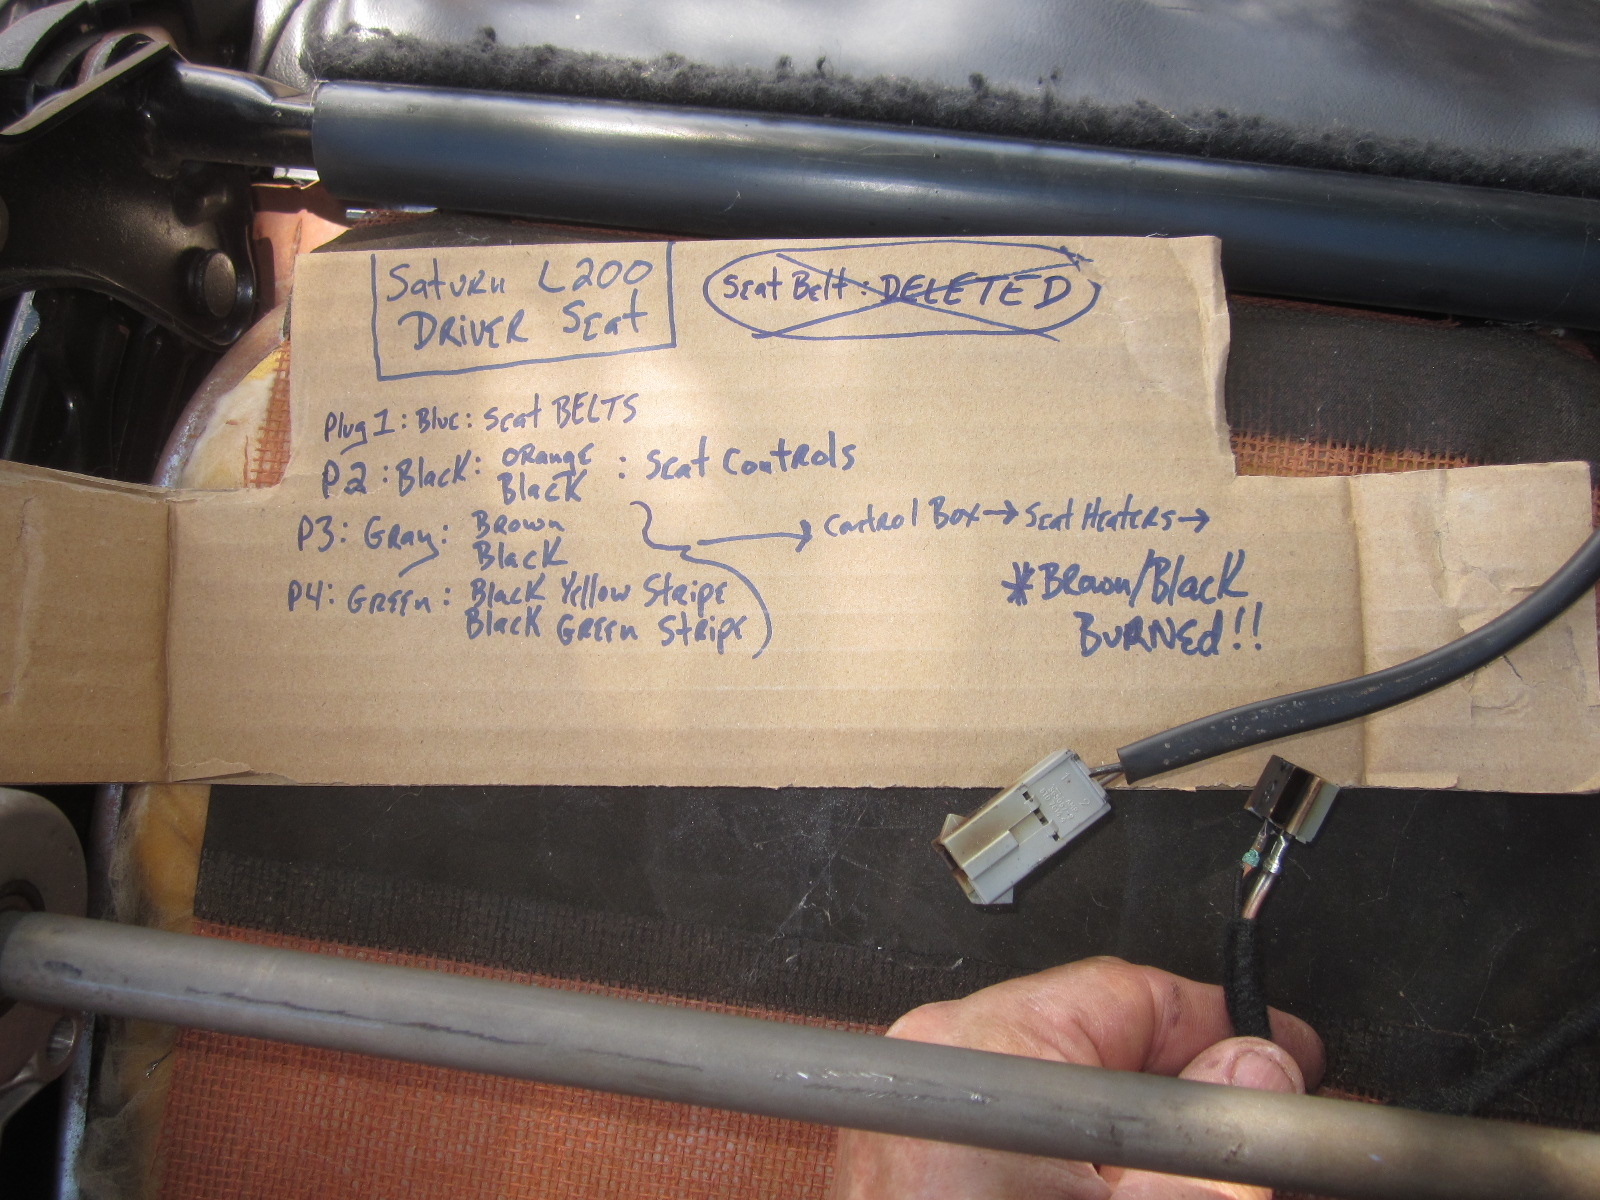 Saturn L200
DRIVER Seat
Seat Belt: DELETED
Plug 1: Blue: Seat BELTS
P2: Black: Orange
Black : Seat Controls
P3: Gray: Brown
Black
P4: Green: Black Yellow Stripe
Black Green Stripe
Control Box → Seat Heaters →
*Brown/Black
BURNEd!!